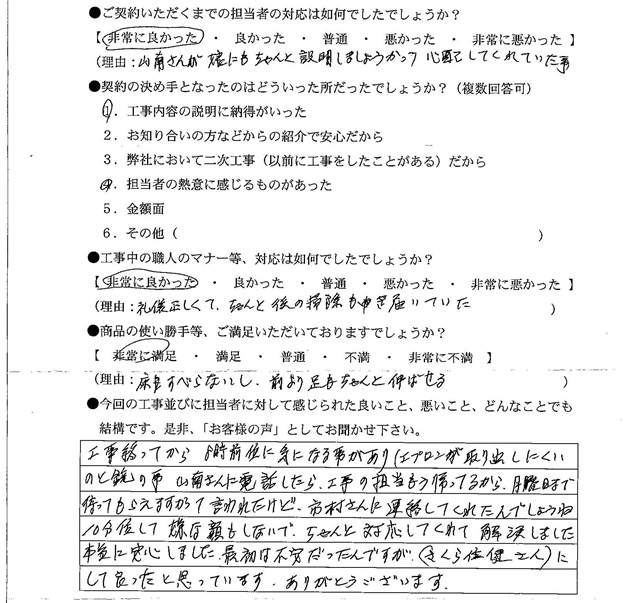 ●ご契約いただくまでの担当者の対応は如何でしたでしょうか？
【 非常に良かった ・ 良かった ・ 普通 ・ 悪かった ・ 非常に悪かった 】
(理由：山南さんが 嫁にもちゃんと 説明しましょうかって 心配してくれていた事
●契約の決め手となったのはどういった所だったでしょうか？（複数回答可）
１．工事内容の説明に納得がいった
２．お知り合いの方などからの紹介で安心だから
３．弊社において二次工事（以前に工事をしたことがある）だから
４．担当者の熱意に感じるものがあった
５．金額面
６．その他（ ）
●工事中の職人のマナー等、対応は如何でしたでしょうか？
【 非常に良かった ・ 良かった ・ 普通 ・ 悪かった ・ 非常に悪かった 】
(理由：礼儀正しくて、ちゃんと 後の掃除が ゆき届いていた )
●商品の使い勝手等、ご満足いただいておりますでしょうか？
【 非常に満足 ・ 満足 ・ 普通 ・ 不満 ・ 非常に不満 】
(理由：床もすべらないし、前より足もちゃんと伸ばせる )
●今回の工事並びに担当者に対して感じられた良いこと、悪いこと、どんなことでも
結構です。是非、「お客様の声」としてお聞かせ下さい。
工事終ってから 8時前位に気になる事があり(エプロンが取り出しにくい
のと鏡の事 山南さんに電話したら、工事の担当もう帰ってるから、月曜日まで
待ってもらえますかって言われたけど、市村さんに連絡してくれたんでしょうね
10分位して 嫌な顔もしないで、ちゃんと対応してくれて 解決しました
本当に安心しました。最初は不安だったんですが、(さくら住建さん)に
して良かったと思っています。ありがとうございます。